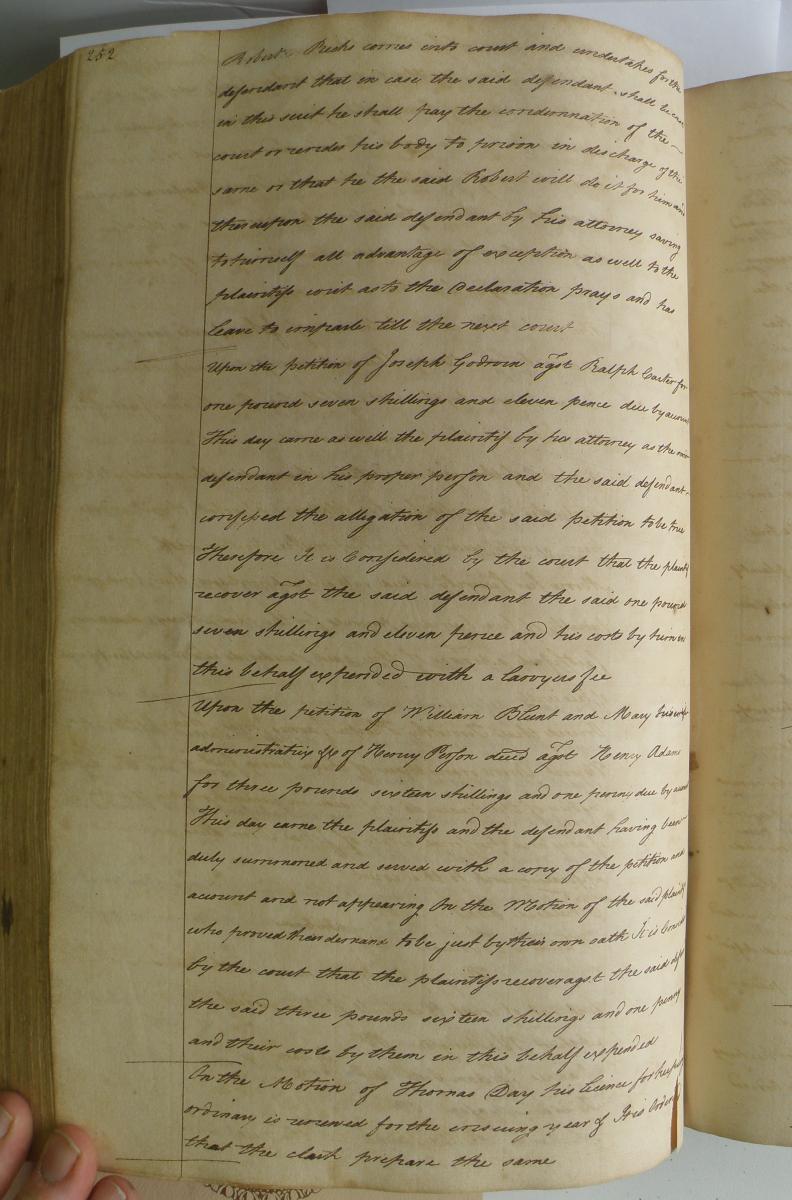 252
Robert Ricks comes into court and undertakes for the
defendant that in case the said defendant shall be cast
in this suit he shall pay the condemnation of the
court or render his body to prison in discharge of the
same or that he the said Robert will do it for him and
thereupon the said defendant by his attorney saving
to himself all advantage of exception as well to the
plaintifs writ as to the Declaration prays and has
leave to imparle till the next court
Upon the petition of Joseph Godwin agst Ralph Carter for
one pound seven shillings and eleven pence due by account
This day came as well the plaintif by his attorney as the
defendant in his proper person and the said defendant
confessed the allegation of the said petition to be true
Therefore It is Considered by the court that the plaintif
recover agst the said defendant the said one pound
seven shillings and eleven pence and his costs by him in
this behalf expended with a Lawyers fee
Upon the petition of William Blunt and Mary his wife
administratrix &c of Henry Person decd agst Henry Adams
for three pounds sixteen shillings and one penny due by account
This day came the plaintifs and the defendant having been
duly summoned and served with a copy of the petition and
account and not appearing On the Motion of the said plaintifs
who proved their demand to be just by their own oath It is
by the court that the plaintifs recover agst the said deft
the said three pounds sixteen shillings and one penny
and their costs by them in this behalf expended
On the Motion of Thomas Day his licence for keeping
ordinary is renewed for the ensuing year & It is Ordered
that the clerk prepare the same